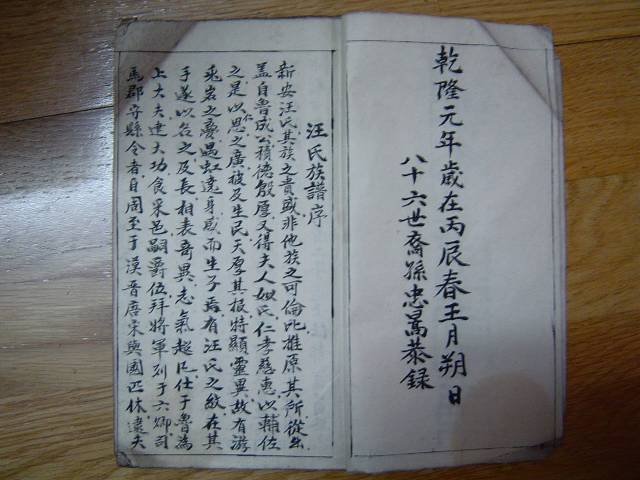 乾隆元年歲在丙辰春王月朔日
八十六世裔孫忠暠恭録
汪氏族譜序
新安汪氏其族之貴盛非他族之可倫比推原其所從出
蓋自魯成公積德殷厚又得夫人姒氏仁孝慈惠以輔佐
之是以仁恩之廣被及生民天厚其报特顯靈異故有游
之憂遇虹遶身感而生子焉有汪氏之紋在其
手遂以名之及長相表奇異志氣超仕于魯為
上大夫建大功食采邑嗣爵伍拜將軍列于六卿司
馬郡守縣令者自周至于漢晉唐宋與國匹休逮夫